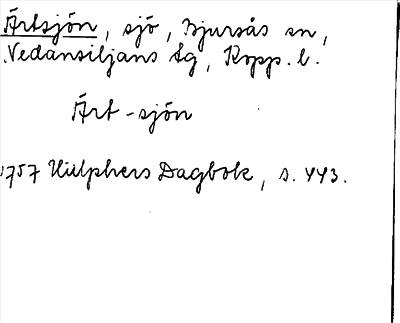 Ärtsjön, sjö, Bjursås sn,
Nedansiljans tg, Kopp. l.
Ärt-sjön
1757 Hülphers Dagbok, s. 443.